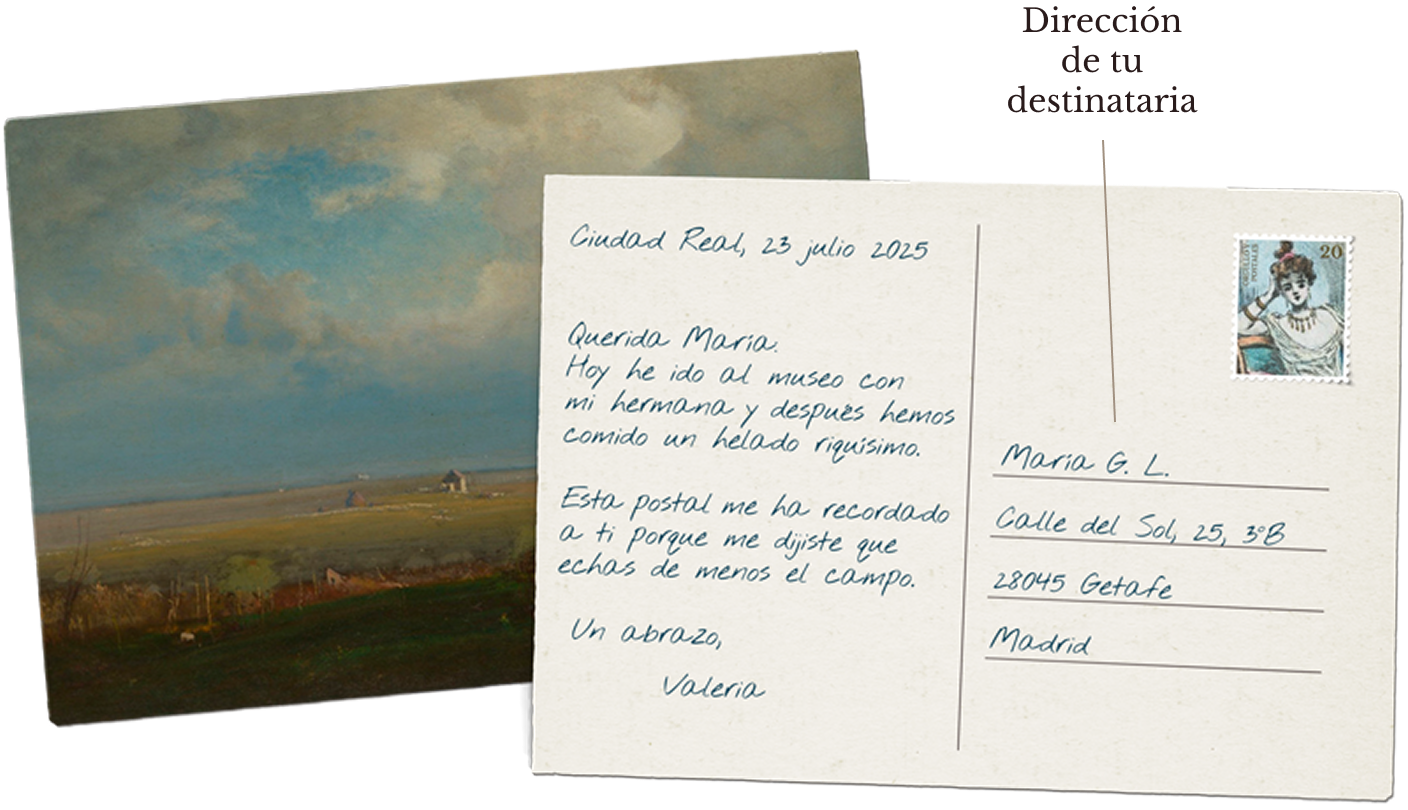 Dirección
de tu
destinataria
Ciudad Real, 23 julio 2025
Querida María.
Hoy he ido al museo con
mi hermana y después hemos
comido un helado riquísimo.
Esta postal me ha recordado
a ti porque me dijiste que
echas de menos el campo.
Un abrazo,
Valeria
ORGULLO Y
POSTALES
20
María G. L.
Calle del Sol, 25, 3ºB
28045 Getafe
Madrid